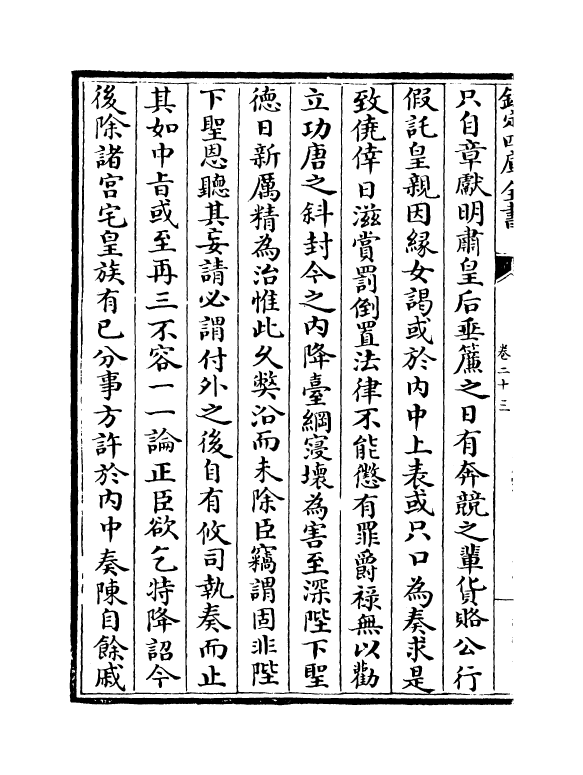 欽定四庫全書
卷二十三
只自章獻明肅皇后垂簾之日有奔競之輩貨賂公行
假託皇親因緣女謁或於內中上表或只口為奏求是
致僥倖日滋賞罰倒置法律不能懲有罪爵祿無以勸
立功唐之斜封今之內降臺綱寖壞為害至深陛下聖
德日新厲精為治惟此久弊沿而未除臣竊謂固非陛
下聖恩聽其妄請必謂付外之後自有攸司執奏而止
其如中旨或至再三不容一一論正臣欲乞特降詔今
後除諸宮宅皇族有已分事方許於內中奏陳自餘戚